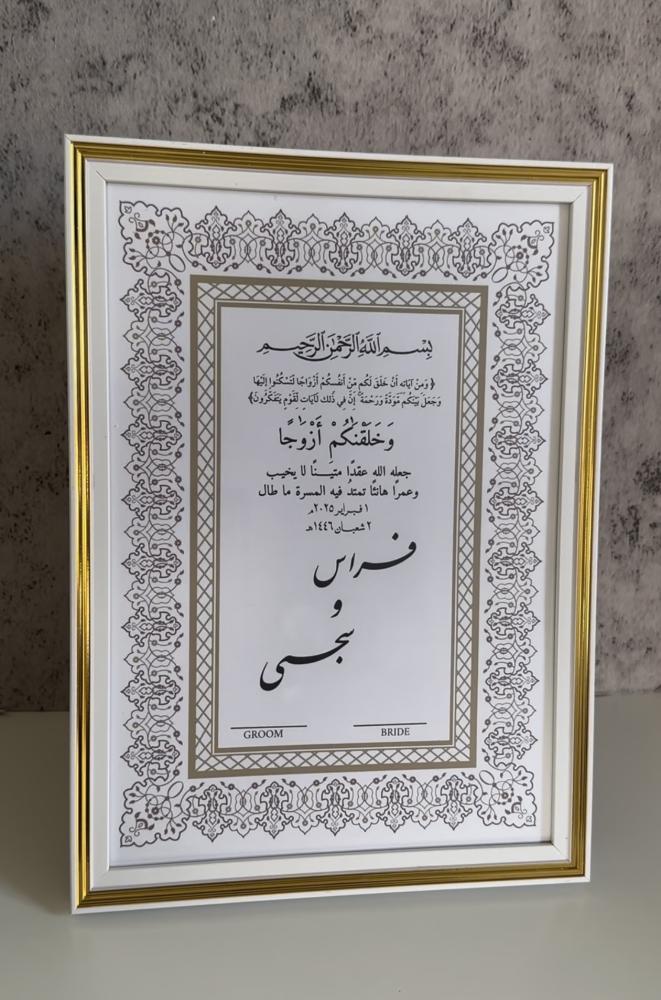 بِسْمِ اللَّهِ الرَّحْمَٰنِ الرَّحِيمِ
﴿ وَمِنْ آيَاتِهِ أَنْ خَلَقَ لَكُم مِّنْ أَنفُسِكُمْ أَزْوَاجًا لِّتَسْكُنُوا إِلَيْهَا
وَجَعَلَ بَيْنَكُم مَّوَدَّةً وَرَحْمَةً ۚ إِنَّ فِي ذَٰلِكَ لَآيَاتٍ لِّقَوْمٍ يَتَفَكَّرُونَ﴾
وَخَلَقْنَٰكُمْ أَزْوَٰجًا
جعله الله عقدًا متينًا لا يخيب
وعمرًا هانئا تمتدُ فيه المسرة ما طال
١ فبراير ٢٠٢٥م
٢ شعبان ١٤٤٦هـ
فراس
و
GROOM BRIDE